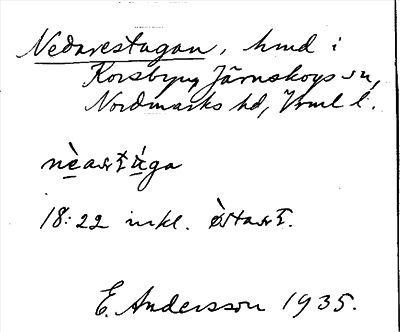 Nedarestugan, hmd i
Korsbyn, Järnskogs sn,
Nordmarks hd, Vrml l.
18:22 inkl.
E. Andersson 1935.